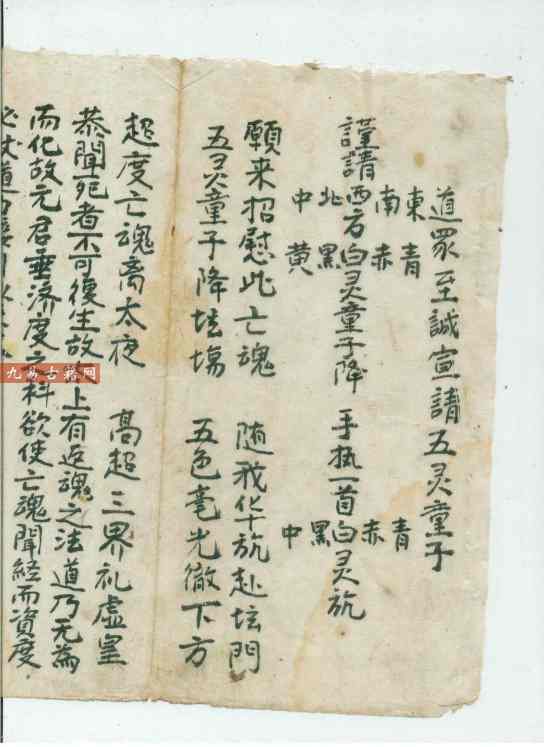 道眾至誠宣請五灵童子
東 南 北 中
青 赤 黑 黃
青 赤 黑 中
謹請西方白灵童子降 手执一首白灵旂
願来招慰此亡魂 随我化旂赴坛門
五灵童子降坛場 五色毫光徹下方
超度亡魂离太夜 高超三界礼虚皇
恭聞死者不可復生故 上有返魂之法道乃无為
而化故元君垂济度之科欲使亡魂聞経而資度
九易古籍网